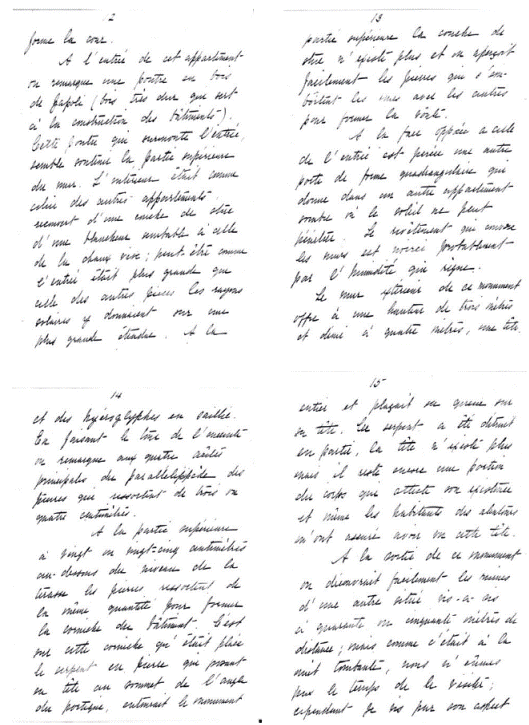 12
forme la cour.
A l'entrée de cet appartement
on remarque une poutre en bois
de papoli (bois très dur que sert
à la construction des bâtiments).
Cette poutre qui surmonte l'entrée,
semble soutenir la partie supérieure
du mur. L'intérieur était comme
celui des autres appartements
d'une couche de stuc
d'une blancheur semblable à celle
de la chaux vive; peut être comme
l'entrée était plus grande que
celle des autres pièces les rayons
solaires y donnaient sur une
plus grande étendue. A la
13
partie supérieure la couche de
stuc n'existe plus et on aperçoit
facilement les pierres qui s'em-
boîtent les unes avec les autres
pour former la voûte.
A la face opposée a celle
de l'entrée est percée une autre
porte de forme quadrangulaire qui
donne dans un autre appartement
sombre où le soleil ne peut
pénétrer. Le revêtement qui couvre
les murs est noirci probablement
par l'humidité qui règne.
Le mur extérieur de ce monument
offre à une hauteur de trois mètres
et demi à quatre mètres, une tête
14
et des hyéroglyphes en saillie.
En faisant le tour de l'enceinte
on remarque aux quatre
principales du parallélippède des
pierres que ressortent de trois ou
quatre centimètres.
A la partie supérieure
à vingt ou vingt-cinq centimètres
au-dessous du niveau de la
terasse les pierres ressortent de
la même quantité pour former
la corniche du bâtiment. C'est
sur cette corniche qu'était placé
le serpent en pierre qui prenant
sa tête au sommet de l'angle
du portique, entourait le monument
15
entier et plaçait sa queue sur
sa tête. Le serpent a été détruit
en partie, la tête n'existe plus
mais il reste encore une portion
du corps que atteste son existence
et même les habitants des
m'ont assuré avoir vu cette tête.
A la sortie de ce monument
on découvrait facilement les ruines
d'une autre situé vis-a-vis
à quarante ou cinquante mètres de
distance; mais comme c'était à la
nuit tombante, nous n'eûmes
pas le temps de le visiter;
cependant je vis par son aspect